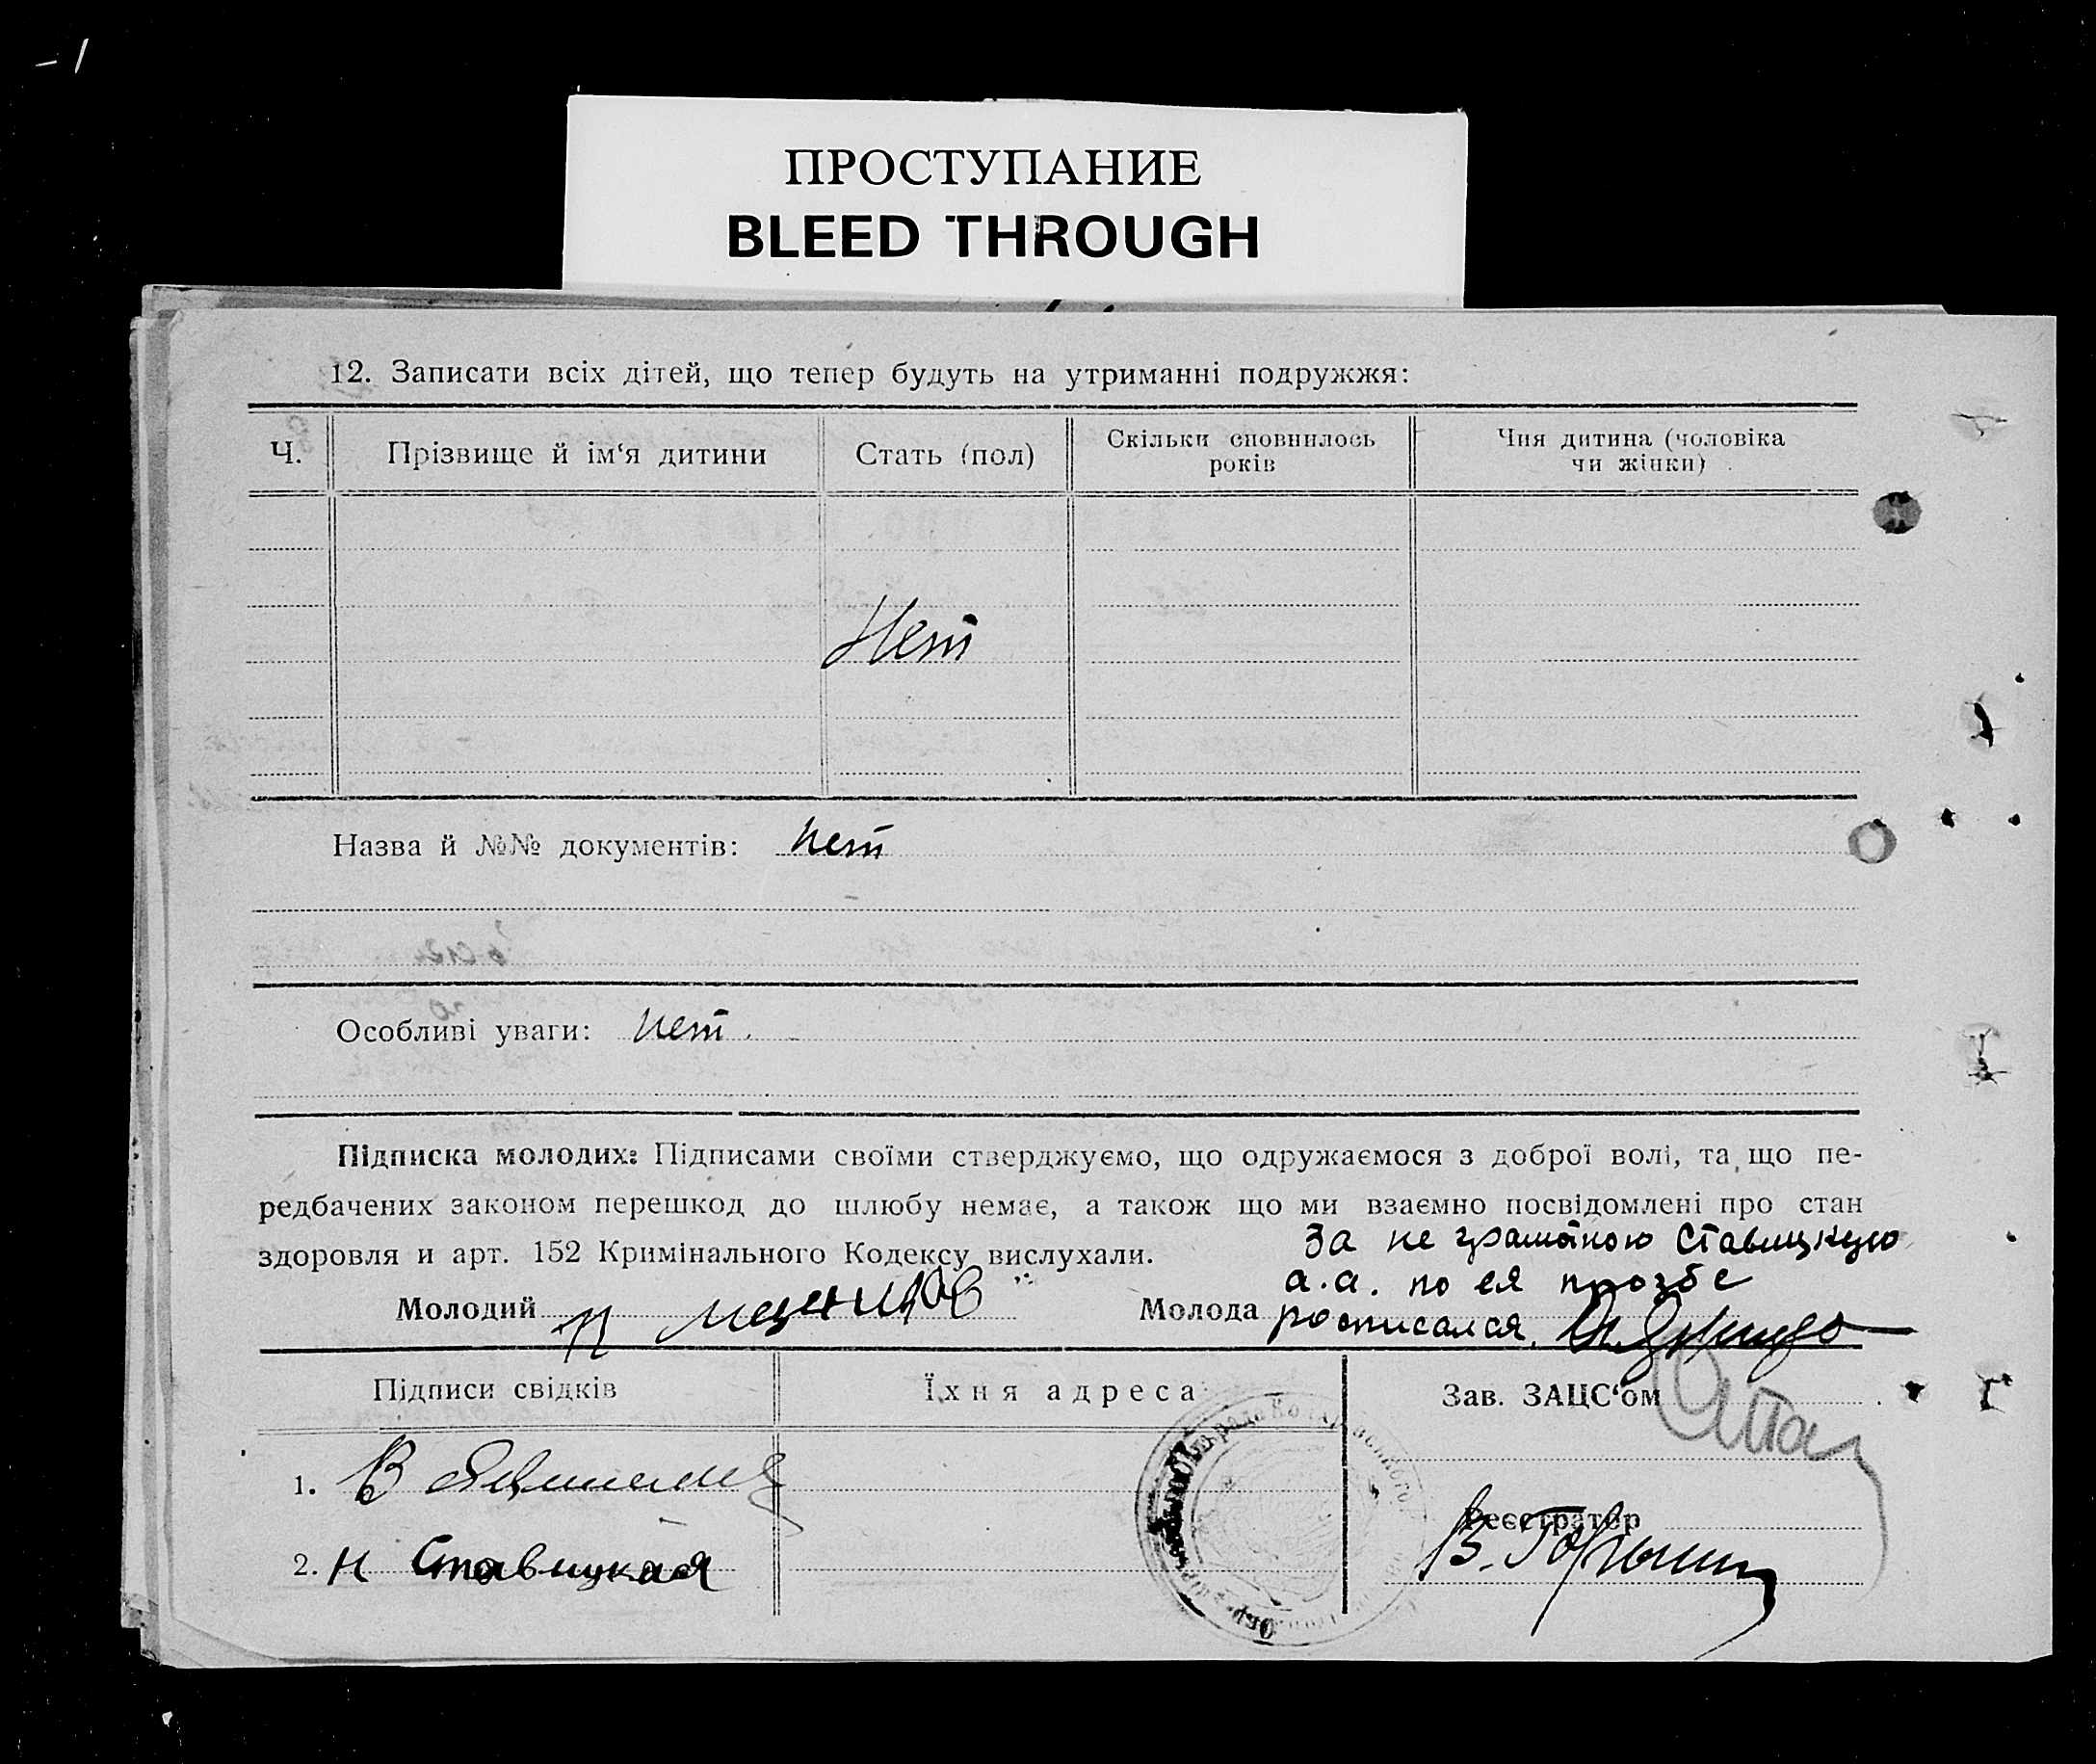 ПРОСТУПАНИЕ
BLEED THROUGH
12. Записати всіх дітей, що тепер будуть на утриманні подружжя:
Ч. Прізвище й ім‘я дитини Стать (пол) Скільки сповнилось років Чия дитина (чоловіка чи жінки)
Нет
Назва й №№ документів: нет
Особливі уваги: нет.
Підписка молодих: Підписами своїми стверджуємо, що одружаємося з доброї волі, та що пе-
редбачених законом перешкод до шлюбу немає, а також що ми взаємно посвідомлені про стан
здоровля и арт. 152 Кримінального Кодексу вислухали.
За не грамотною Ставицкую
а.а. по ея прозбе
Молодий Молода росписался.
Підписи свідків Їхня адреса Зав. ЗАЦС‘ом
1. В
Реєстратор
2. Н Ставицкая
В.